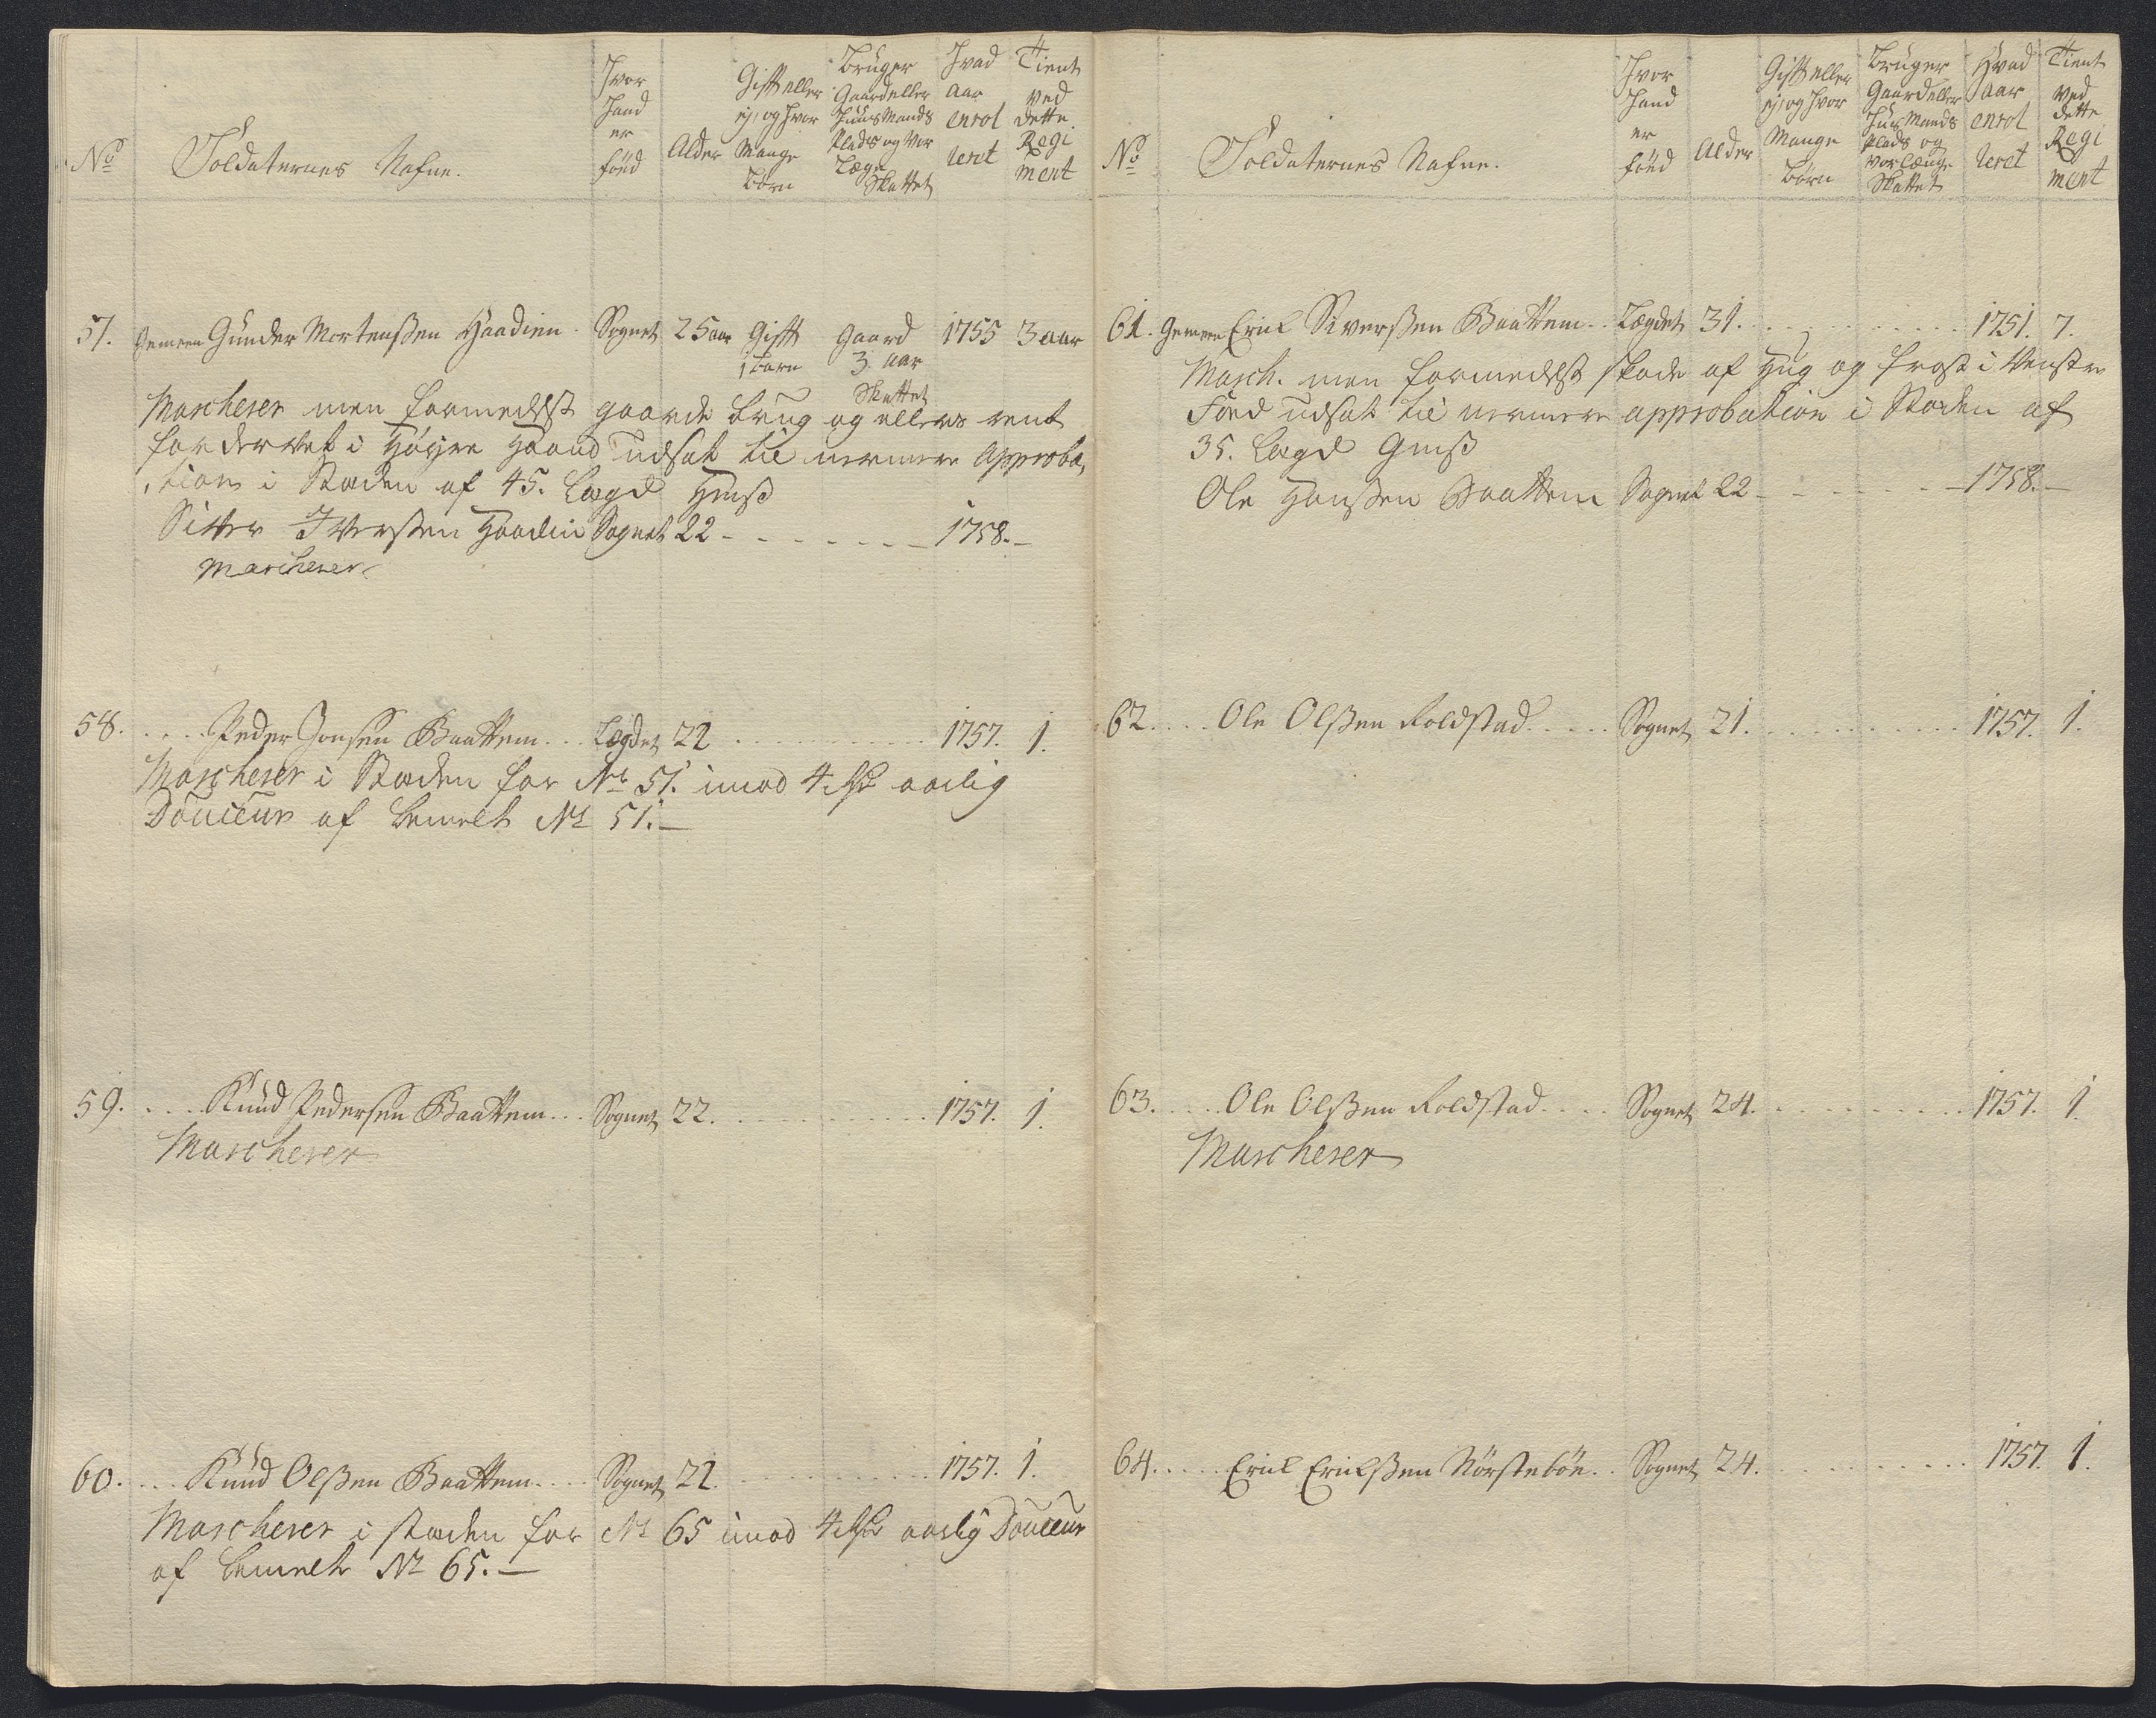 No
Soldaternes Nafne.
Hvor
Hand
er
föed
Alder
Gift eller
ej, og hvor
Mange
Börn
Bruger
Gaard eller
Huus Mands
Plads og vor
Længe
Skattet
Hvad
Aar
enrol
leret
Tient
ved
dette
Regi
ment
57. Gemeen Gunder Mortenßen Haadien. Sognet 25 aar Gift Gaard 1755 3 aar
1 barn 3. aar
Skattet
Marcherer men formedelst gaards brug og ellers
fordervet i Høyre Haand udsat til nermere Approba,
,tion i Staden af 45. Lægd
Iverßen Haadien Sognet 22 - - - - - - 1758.-
Marcherer.
58. . . . Peder Jonsen Baattem . . . Lægdet 22 . . . . . . 1757. 1.
Marcherer i Staden for No 51. imod 4 rdr aarlig
Douceur af bemelt No 51.-
59. . . . Knud Pedersen Baattem . . . Sognet 22. . . . . . 1757. 1.
Marcherer
60. . . . Knud Olßen Baattem. . . . Sognet 22. . . . . . 1757. 1.
Marcherer i staden for No 65 imod 4 rdr aarlig Douceur
af bemelte No 65.-
No
Soldaternes Nafne.
Hvor
Hand
er
föed
Alder
Gift eller
ej, og hvor
Mange
Börn
Bruger
Gaard eller
Huus Mands
Plads og
vor længe
Skattet
Hvad
Aar
enrol
leret
Tient
ved
dette
Regi
ment
61. Gemeen Erick Siverßen Baattem . . Lægdet 31. . . . . . 1751. 7.
March. men formedelst skade af Hug og frost i Venstre
Foed udsat til nermere approbation i Staden af
35. Lægd
Ole Hanßen Baattem Sognet 22 - - - - - - 1758.-
62. . . . Ole Olßen Roldstad . . . . Sognet 21. . . . . . 1757. 1.
63. . . . Ole Olßen Roldstad . . . . Sognet 24. . . . . . 1757. 1.
Marcherer
64. . . . Erick Erickßen Nörsteböe . . Sognet 24. . . . . . 1757. 1.